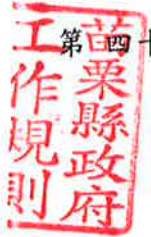 第四十
苗栗縣政府
工作規則